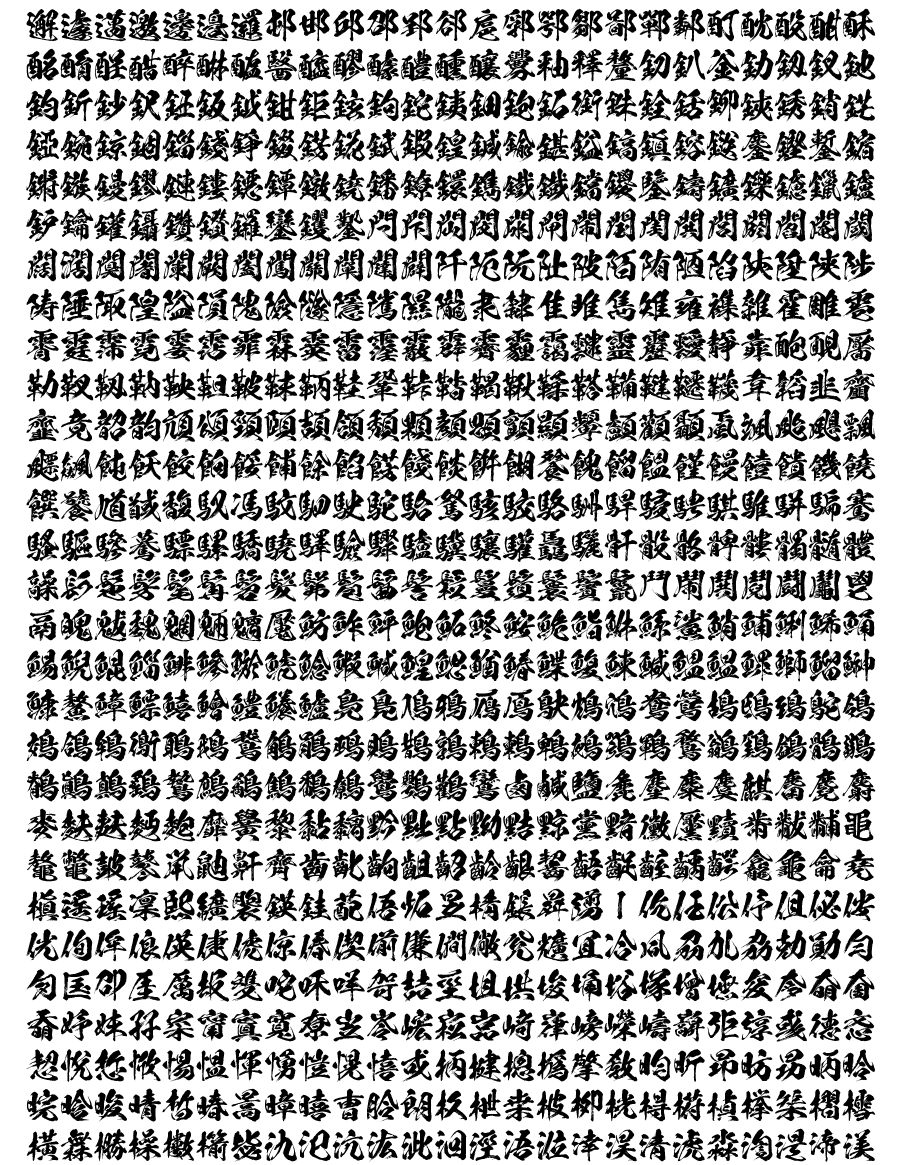 邂遽邁邀邊邉邏邨邯邱邵郢郤扈郛鄂鄒鄙鄲鄰酊酖酘酣酥
酩酳酲醋醉醂醢醫醯醪醵醴醺釀釁釉釋釐釖釟釡釛釼釵釶
鈞釿鈔鈬鈕鈑鉞鉗鉅鉉鉤鉈銕鈿鉋鉐銜銖銓銛鉚鋏銹銷鋩
錏鋺鍄錮錙錢錚錣錺錵錻鍜鍠鍼鍮鍖鎰鎬鎭鎔鎹鏖鏗鏨鏥
鏘鏃鏝鏐鏈鏤鐚鐔鐓鐃鐇鐐鐶鐫鐵鐡鐺鑁鑒鑄鑛鑠鑢鑞鑪
鈩鑰鑵鑷鑽鑚鑼鑾钁鑿閂閇閊閔閖閘閙閠閨閧閭閼閻閹閾
闊濶闃闍闌闕闔闖關闡闥闢阡阨阮阯陂陌陏陋陷陜陞陝陟
陦陲陬隍隘隕隗險隧隱隲隰隴隶隸隹雎雋雉雍襍雜霍雕雹
霄霆霈霓霎霑霏霖霙霤霪霰霹霽霾靄靆靈靂靉靜靠靤靦靨
勒靫靱靹鞅靼鞁靺鞆鞋鞏鞐鞜鞨鞦鞣鞳鞴韃韆韈韋韜韭齏
韲竟韶韵頏頌頸頤頡頷頽顆顏顋顫顯顰顱顴顳颪颯颱颶飄
飃飆飩飫餃餉餒餔餘餡餝餞餤餠餬餮餽餾饂饉饅饐饋饑饒
饌饕馗馘馥馭馮馼駟駛駝駘駑駭駮駱駲駻駸騁騏騅駢騙騫
騷驅驂驀驃騾驕驍驛驗驟驢驥驤驩驫驪骭骰骼髀髏髑髓體
髞髟髢髣髦髯髫髮髴髱髷髻鬆鬘鬚鬟鬢鬣鬥鬧鬨鬩鬪鬮鬯
鬲魄魃魏魍魎魑魘魴鮓鮃鮑鮖鮗鮟鮠鮨鮴鯀鯊鮹鯆鯏鯑鯒
鯣鯢鯤鯔鯡鰺鯲鯱鯰鰕鰔鰉鰓鰌鰆鰈鰒鰊鰄鰮鰛鰥鰤鰡鰰
鱇鰲鱆鰾鱚鱠鱧鱶鱸鳧鳬鳰鴉鴈鳫鴃鴆鴪鴦鶯鴣鴟鵄鴕鴒
鵁鴿鴾鵆鵈鵝鵞鵤鵑鵐鵙鵲鶉鶇鶫鵯鵺鶚鶤鶩鶲鷄鷁鶻鶸
鶺鷆鷏鷂鷙鷓鷸鷦鷭鷯鷽鸚鸛鸞鹵鹹鹽麁麈麋麌麒麕麑麝
麥麩麸麪麭靡黌黎黏黐黔黜點黝黠黥黨黯黴黶黷黹黻黼黽
鼇鼈皷鼕鼡鼬鼾齊齒齔齣齟齠齡齦齧齬齪齷齲齶龕龜龠堯
槇遙瑤凜熙纊褜鍈銈蓜俉炻昱棈鋹曻彅丨仡仼伀伃伹佖侒
侊侚侔俍偀倢俿倞偆偰偂傔僴僘兊兤冝冾凬刕劜劦勀勛匀
匇匤卲厓厲叝﨎咜咊咩哿喆坙坥垬埈埇﨏塚增墲夋奓奛奝
奣妤妺孖寀甯寘寬尞岦岺峵崧嵓﨑嵂嵭嶸嶹巐弡弴彧德忞
恝悅悊惞惕愠惲愑愷愰憘戓抦揵摠撝擎敎昀昕昻昉昮昞昤
晥晗晙晴晳暙暠暲暿曺朎朗杦枻桒柀栁桄棏﨓楨﨔榘槢樰
橫橆橳橾櫢櫤毖氿汜沆汯泚洄涇浯涖涬淏淸淲淼渹湜渧渼